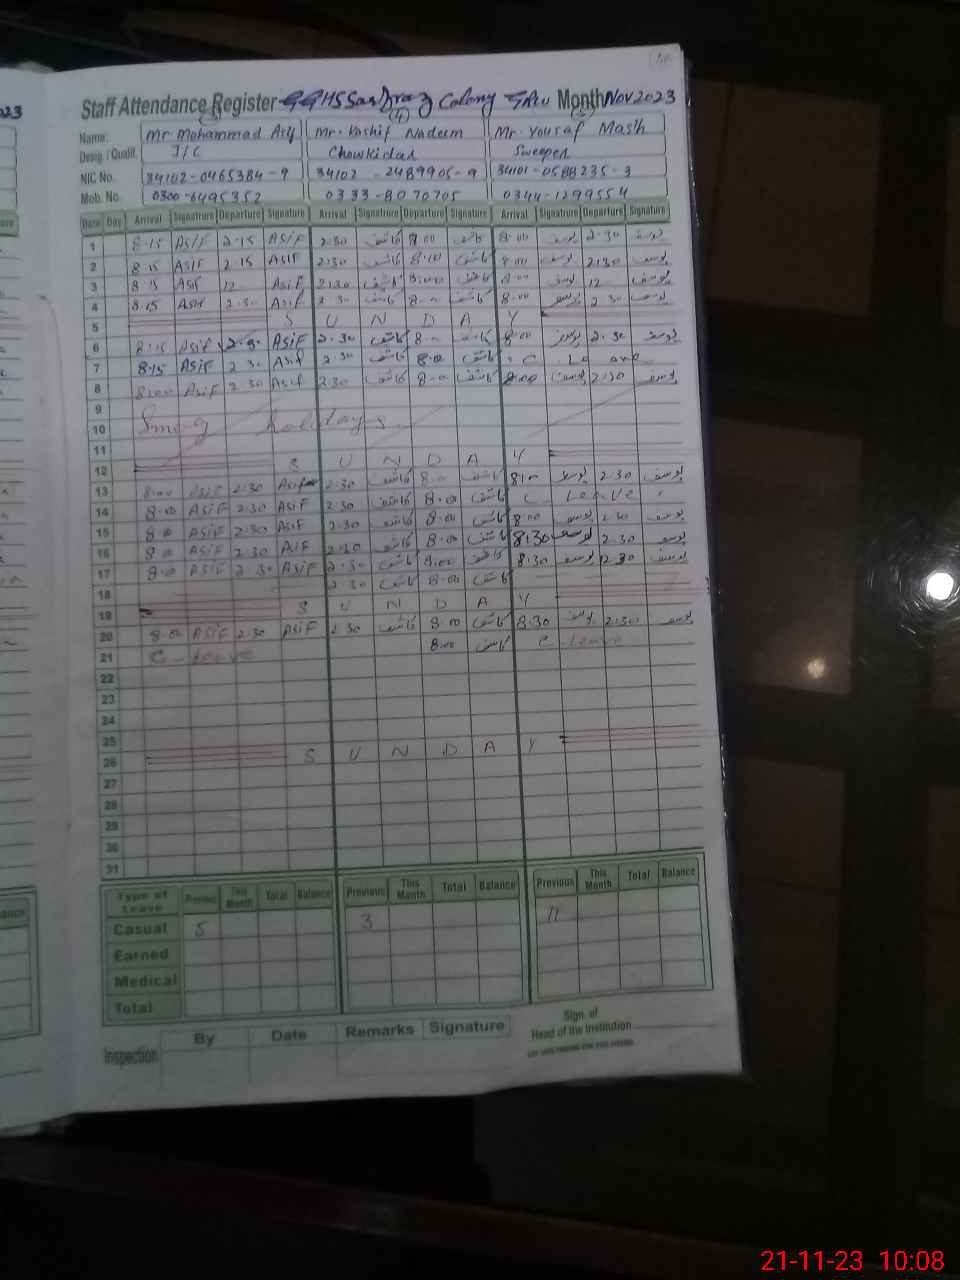 023
Staff Attendance Register GGHSS Colony Month Nov 2023
Name: Mr. Mohammad Asif Mr. Kashif Nadeem Mr. Yousaf Masih
Desig. / Qualif. J/C Chowkidar Sweeper
NIC No. 34102-0465384-9 34102-2489905-9 34101-0588235-3
Mob. No. 0300-6495352 0333-8070705 0344-1299554
Date Day Arrival Signatrure Departure Signature Arrival Signatrure Departure Signature Arrival Signatrure Departure Signature
1 8-15 ASIF 2-15 ASIF 2-30 کاشف 8-00 کاشف 8-00 یوسف 2-30 یوسف
2 8-15 ASIF 2-15 ASIF 2-30 کاشف 8-00 کاشف 8-00 یوسف 2-30 یوسف
3 8-15 ASIF 12 ASIF 2-30 کاشف 8-00 کاشف 8-00 یوسف 12 یوسف
4 8-15 ASIF 2-30 ASIF 2-30 کاشف 8-00 کاشف 8-00 یوسف 2-30 یوسف
5 S U N D A Y
6 8-15 Asif 2-30 ASIF 2-30 کاشف 8-00 کاشف 8-00 یوسف 2-30 یوسف
7 8-15 ASIF 2-30 Asif 2-30 کاشف 8-00 کاشف C Leave
8 8-00 ASIF 2-30 Asif 2-30 کاشف 8-00 کاشف 8-00 یوسف 2-30 یوسف
9
10 Smog holidays.
11
12 S U N D A Y
13 8-00 Asif 2-30 Asif 2-30 کاشف 8-00 کاشف 8-00 یوسف 2-30 یوسف
14 8-00 ASIF 2-30 ASIF 2-30 کاشف 8-00 کاشف C. Leave
15 8-00 ASIF 2-30 ASIF 2-30 کاشف 8-00 کاشف 8-00 یوسف 2-30 یوسف
16 8-00 ASIF 2-30 ASIF 2-30 کاشف 8-00 کاشف 8-30 یوسف 2-30 یوسف
17 8-00 ASIF 2-30 ASIF 2-30 کاشف 8-00 کاشف 8-30 یوسف 2-30 یوسف
18 2-30 کاشف 8-00 کاشف
19 S U N D A Y
20 8-00 ASIF 2-30 ASIF 2-30 کاشف 8-00 کاشف 8-30 یوسف 2-30 یوسف
21 C-Leave 8-00 کاشف C-Leave
22
23
24
25
26 S U N D A Y
27
28
29
30
31
Type of Leave Previous This Month Total Balance Previous This Month Total Balance Previous This Month Total Balance
Casual 5 3 11
Earned
Medical
Total
Inspection By Date Remarks Signature Sign. of Head of the Institution
21-11-23 10:08